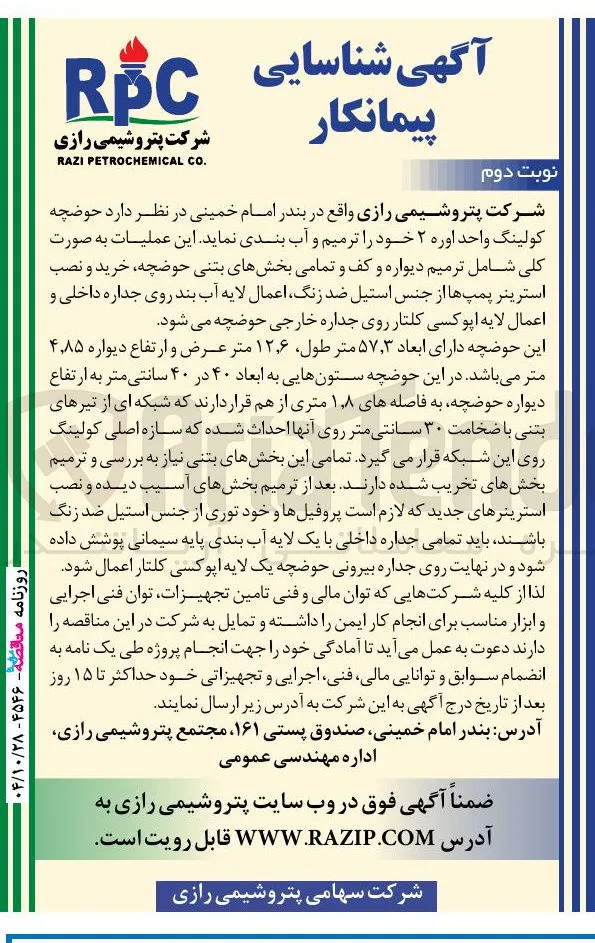 آگهی شناسایی
پیمانکار
RPC
شرکت پتروشیمی رازی
RAZI PETROCHEMICAL CO.
نوبت دوم
شرکت پتروشیمی رازی واقع در بندر امام خمینی در نظر دارد حوضچه
کولینگ واحد اوره ۲ خود را ترمیم و آب بندی نماید. این عملیات به صورت
کلی شامل ترمیم دیواره و کف و تمامی بخش‌های بتنی حوضچه، خرید و نصب
استرینر پمپ‌ها از جنس استیل ضد زنگ، اعمال لایه آب بند روی جداره داخلی و
اعمال لایه اپوکسی کلتار روی جداره خارجی حوضچه می شود.
این حوضچه دارای ابعاد ۵۷,۳ متر طول، ۱۲,۶ متر عرض و ارتفاع دیواره ۴,۸۵
متر می‌باشد. در این حوضچه ستون‌هایی به ابعاد ۴۰ در ۴۰ سانتی‌متر به ارتفاع
دیواره حوضچه، به فاصله های ۱,۸ متری از هم قرار دارند که شبکه ای از تیرهای
بتنی با ضخامت ۳۰ سانتی‌متر روی آنها احداث شده که سازه اصلی کولینگ
روی این شبکه قرار می گیرد. تمامی این بخش‌های بتنی نیاز به بررسی و ترمیم
بخش‌های تخریب شده دارند. بعد از ترمیم بخش‌های آسیب دیده و نصب
استرینرهای جدید که لازم است پروفیل‌ها و خود توری از جنس استیل ضد زنگ
باشند، باید تمامی جداره داخلی با یک لایه آب بندی پایه سیمانی پوشش داده
شود و در نهایت روی جداره بیرونی حوضچه یک لایه اپوکسی کلتار اعمال شود.
لذا از کلیه شرکت‌هایی که توان مالی و فنی تامین تجهیزات، توان فنی اجرایی
و ابزار مناسب برای انجام کار ایمن را داشته و تمایل به شرکت در این مناقصه را
دارند دعوت به عمل می آید تا آمادگی خود را جهت انجام پروژه طی یک نامه به
انضمام سوابق و توانایی مالی، فنی، اجرایی و تجهیزاتی خود حداکثر تا ۱۵ روز
بعد از تاریخ درج آگهی به این شرکت به آدرس زیر ارسال نمایند.
آدرس: بندر امام خمینی، صندوق پستی ۱۶۱، مجتمع پتروشیمی رازی،
اداره مهندسی عمومی
ضمناً آگهی فوق در وب سایت پتروشیمی رازی به
آدرس WWW.RAZIP.COM قابل رویت است.
شرکت سهامی پتروشیمی رازی
روزنامه مناقصه - ۴۵۴۶ - ۰۴/۱۰/۲۸